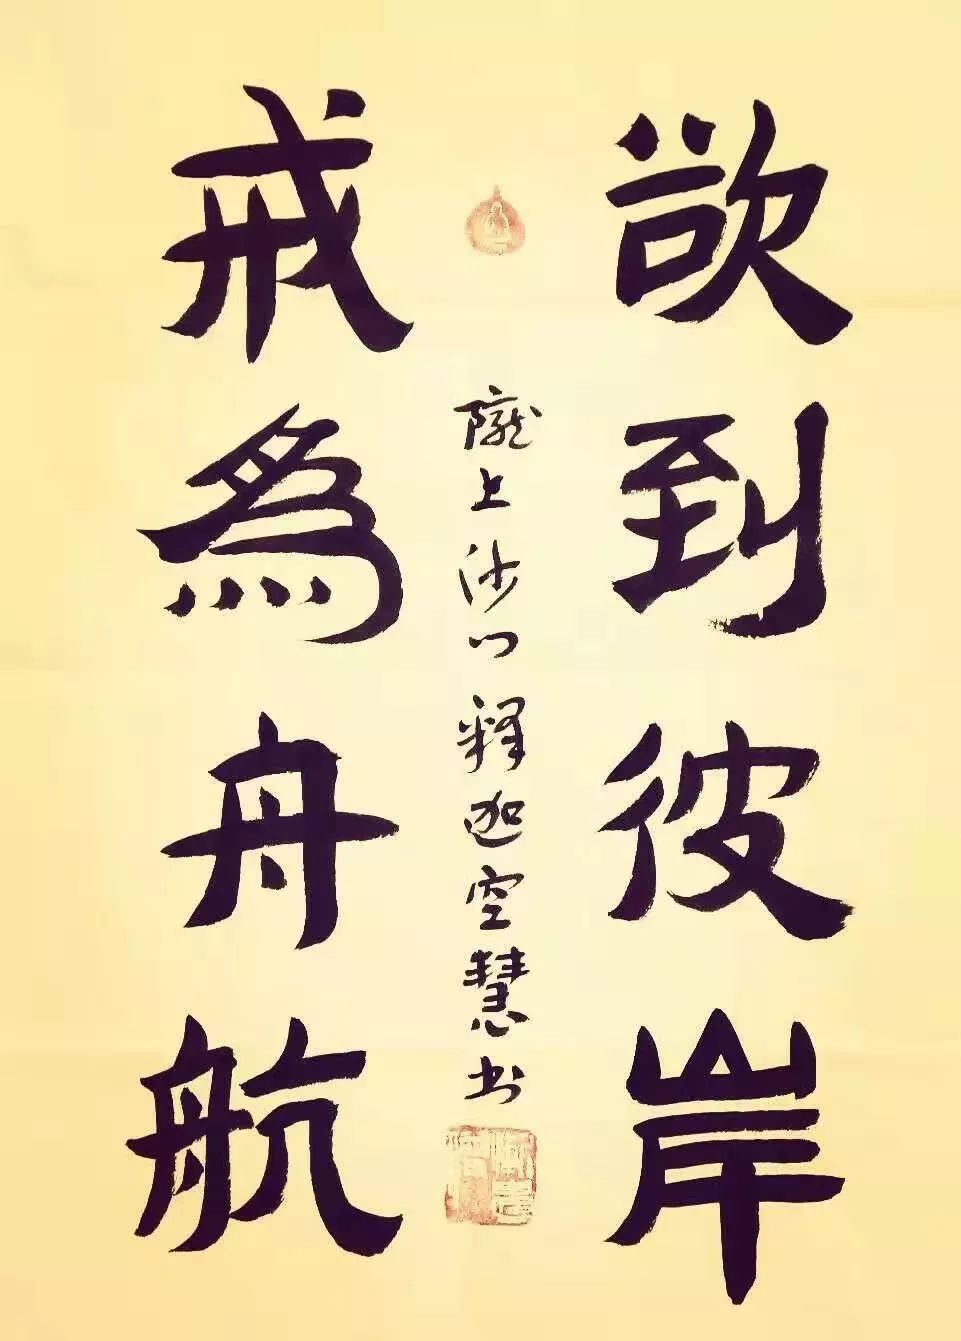 欲到彼岸
戒為舟航
隴上沙门释迦空慧书